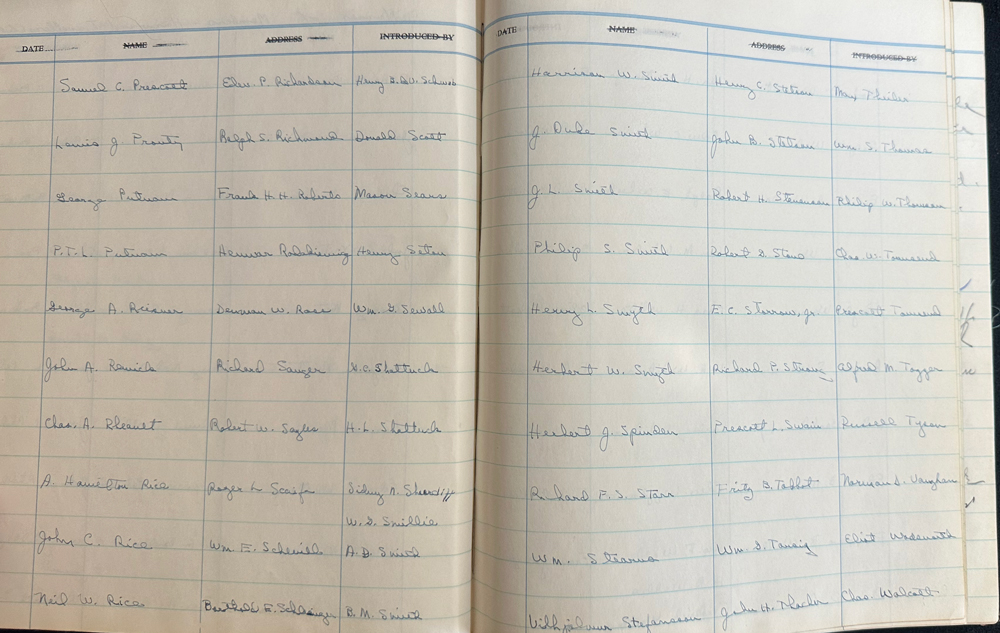 DATE NAME ADDRESS INTRODUCED BY
Samuel C. Prescott Elev. P. Richardson Henry B. DeV. Schwab
Lewis J. Prouty Ralph S. Richmond Donald Scott
George Putnam Frank H. H. Roberts Mason Sears
P.T.L. Putnam Henry Seton
George A. Reisner Denman W. Ross Wm. G. Sewall
John A. Remick Richard Sanger G.C. Shattuck
Chas. A. Rheault Robert W. Sayles H.L. Shattuck
A Hamilton Rice Roger L. Scaife Sidney N. Shurcliff
W.G. Smillie
John C. Rice Wm. E. Schevill A.D. Smith
Neil W. Rice B.M. Smith
DATE NAME ADDRESS INTRODUCED BY
Harrison W. Smith Henry C. Stetson Max Theiler
J. Duke Smith John B. Stetson Wm S. Thomas
J.L. Smith Robert H. Stevenson Philip W. Thomson
Philip S. Smith Robert G. Stone Chas. W. Townsend
Henry L. Smyth E.C. Storrow, Jr. Prescott Townsend
Herbert W. Smyth Richard P. Strong Alfred M. Tozzer
Herbert J. Spinden Prescott L. Swain Russell Tyson
Richard F. S. Starr Fritz B. Talbot Norman D. Vaughan
Wm. Stearns Wm. G. Tausig Eliot Wadsworth
Vilhjalmur Stefansson John H. Chas. Walcott